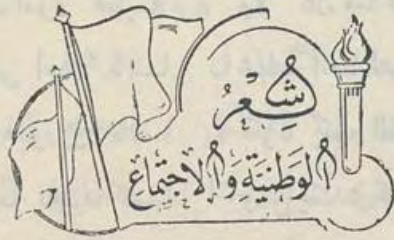 شِعْرُ
الْوَطَنِيَّةِ وَالْاجْتِمَاعِ